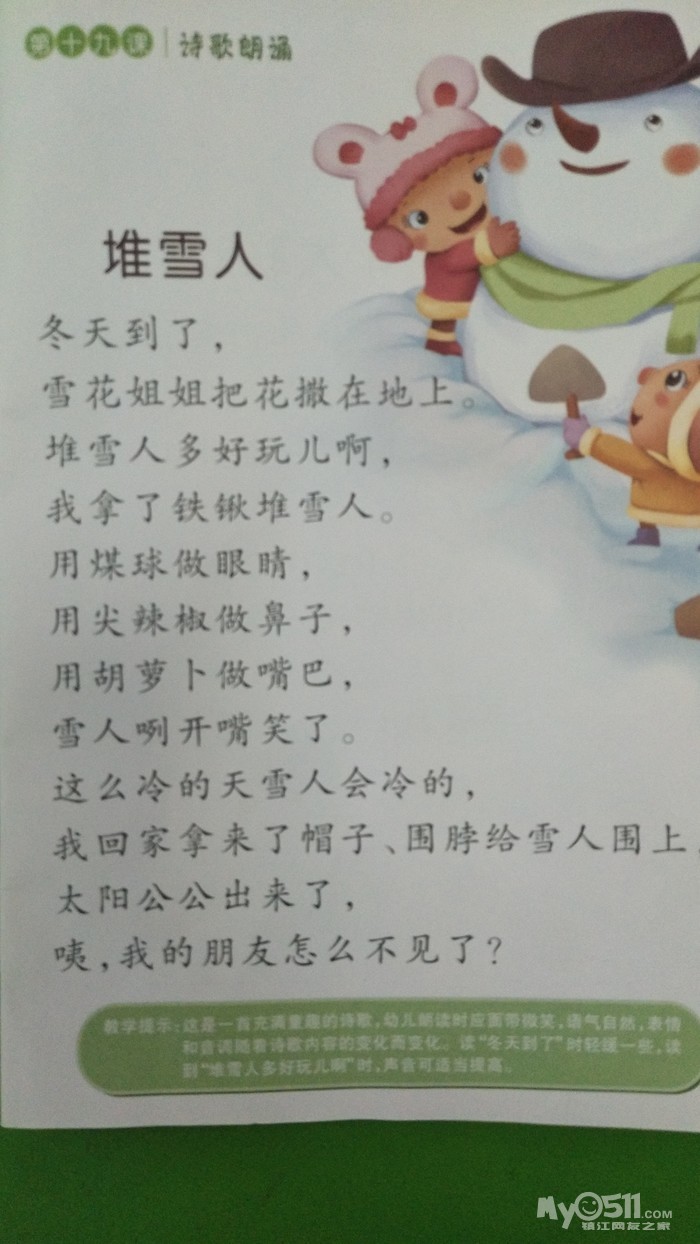 第十九课 诗歌朗诵
堆雪人
冬天到了，
雪花姐姐把花撒在地上。
堆雪人多好玩儿啊，
我拿了铁锹堆雪人。
用煤球做眼睛，
用尖辣椒做鼻子，
用胡萝卜做嘴巴，
雪人咧开嘴笑了。
这么冷的天雪人会冷的，
我回家拿来了帽子、围脖给雪人围上，
太阳公公出来了，
咦，我的朋友怎么不见了？
教学提示：这是一首充满童趣的诗歌，幼儿朗读时应面带微笑，语气自然，表情
和音调随着诗歌内容的变化而变化。读“冬天到了”时轻缓一些，读
到“堆雪人多好玩儿啊”时，声音可适当提高。
My0511.com
镇江网友之家